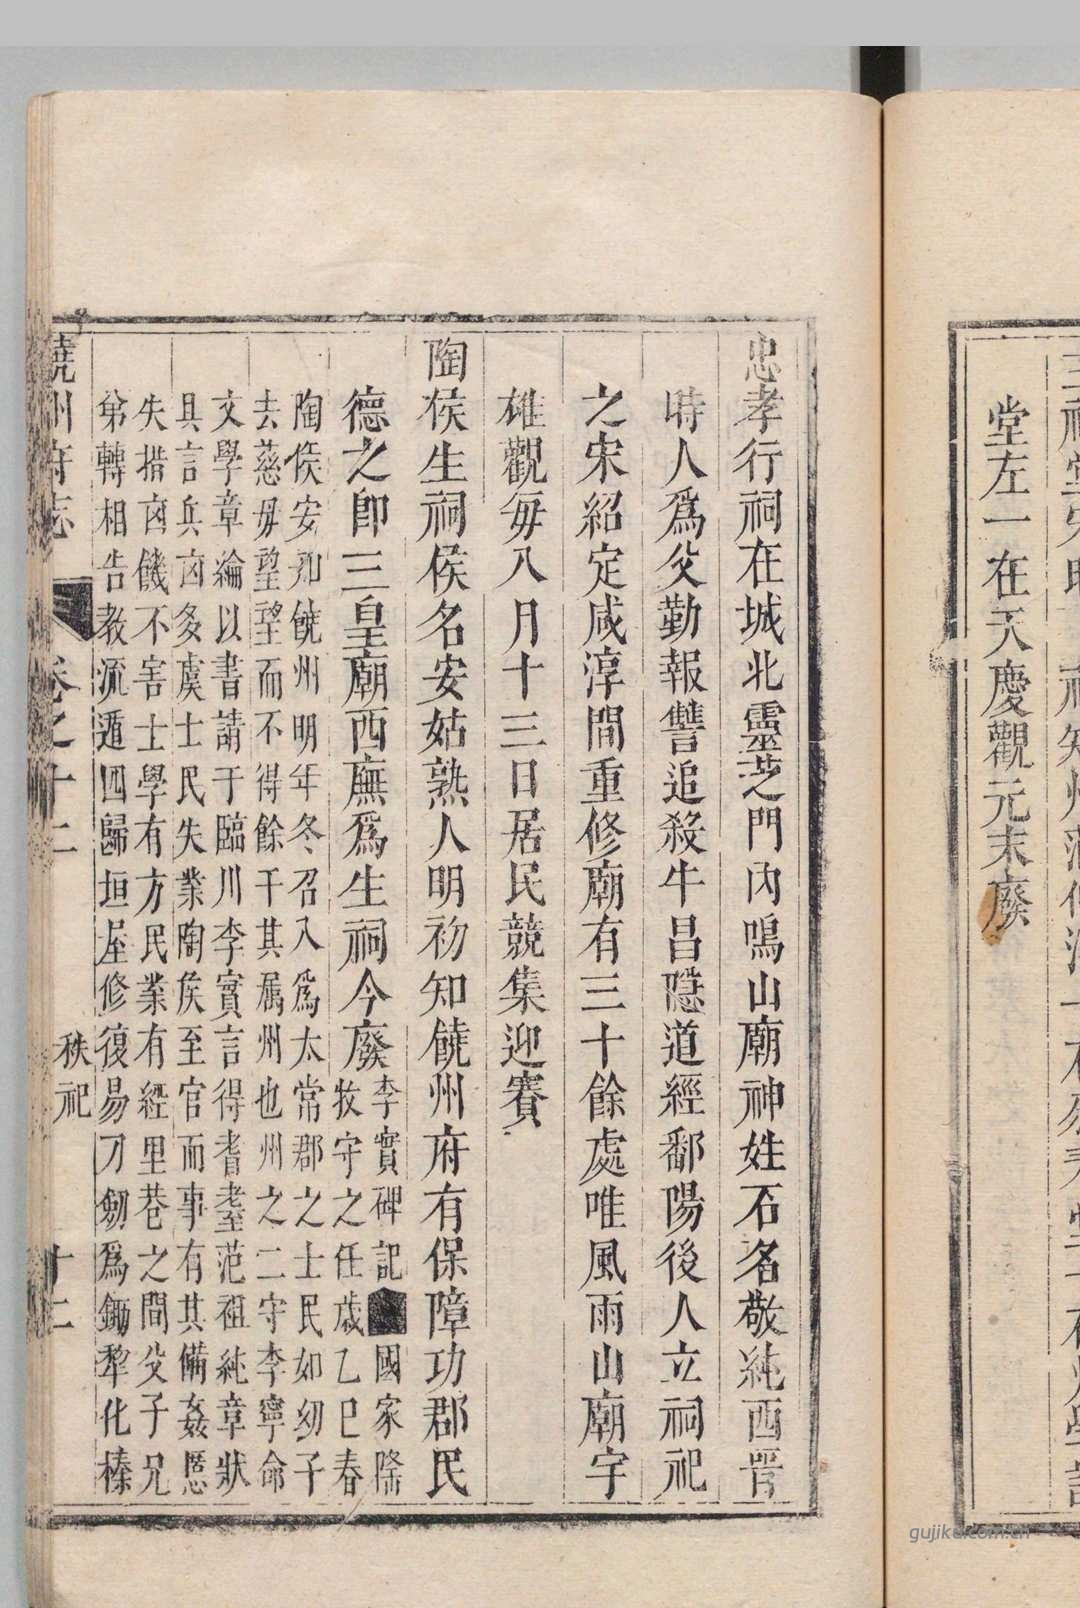 堂左一在天慶觀元末廢
忠孝行祠在城北靈芝門內鳴山廟神姓石名敬純西晉
時人爲父勤報讐追殺牛昌隱道經鄱陽後人立祠祀
之宋紹定咸淳間重修廟有三十餘處唯風雨山廟宇
雄觀毎八月十三日居民競集迎賽
陶侯生祠侯名安姑熟人明初知饒州府有保障功郡民
德之卽三皇廟西廡爲生祠今廢
李實碑記 國家隆
牧守之任歲乙巳春
陶侯安知饒州明年冬召入爲太常郡之士民如幼子
去慈毋望望而不得餘干其屬州也州之二守李寧命
文學章綸以書請于臨川李實言得耆耋范祖純章狀
具言兵凶多虞士民失業陶侯至官而事有其備姦慝
失措凶饑不害士學有方民業有經里巷之間父子兄
弟轉相告教流遁四歸垣屋修復易刀劒爲鋤犂化榛
饒州府志
卷之十二
秩祀
十二
gujiku.com.cn